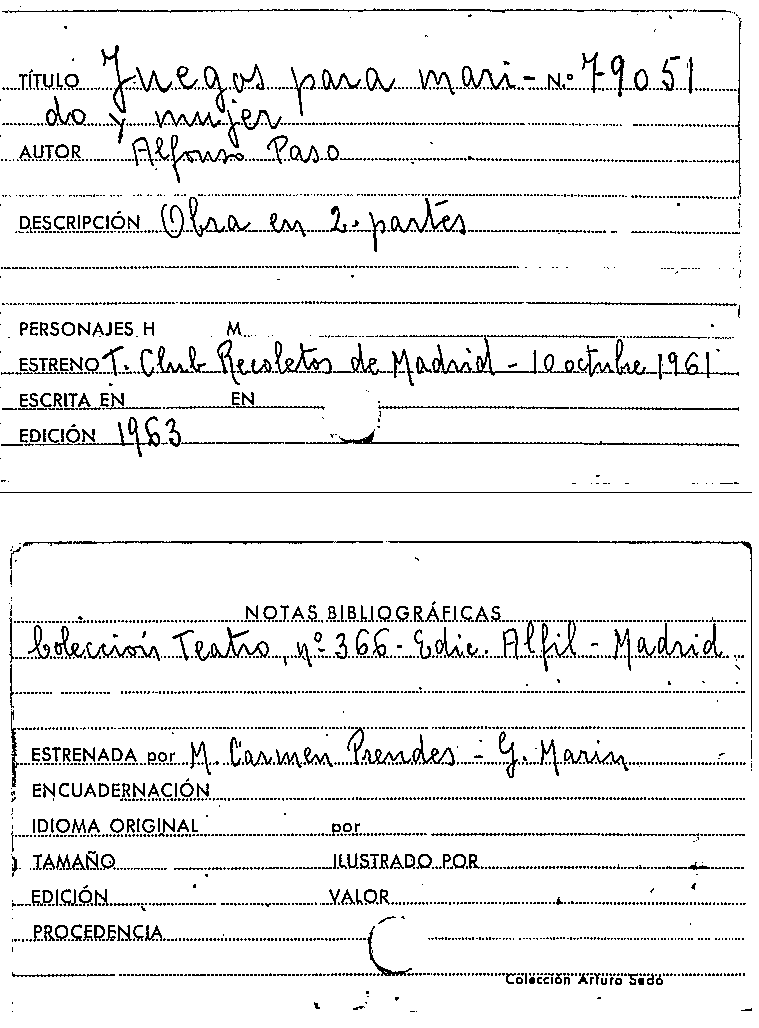 TÍTULO Juegos para mari- N.º 79051
do y mujer
AUTOR Alfonso Paso
DESCRIPCIÓN Obra en 2. partes
PERSONAJES H M.
ESTRENO T. Club Recoletos de Madrid - 10 octubre 1961
ESCRITA EN EN
EDICIÓN 1963
NOTAS BIBLIOGRÁFICAS
Colección Teatro, nº 366 - Edic. Alfil - Madrid
ESTRENADA por M. Carmen Prendes - G. Marin
ENCUADERNACIÓN
IDIOMA ORIGINAL por
TAMAÑO ILUSTRADO POR
EDICIÓN VALOR
PROCEDENCIA
Colección Arturo Sedó